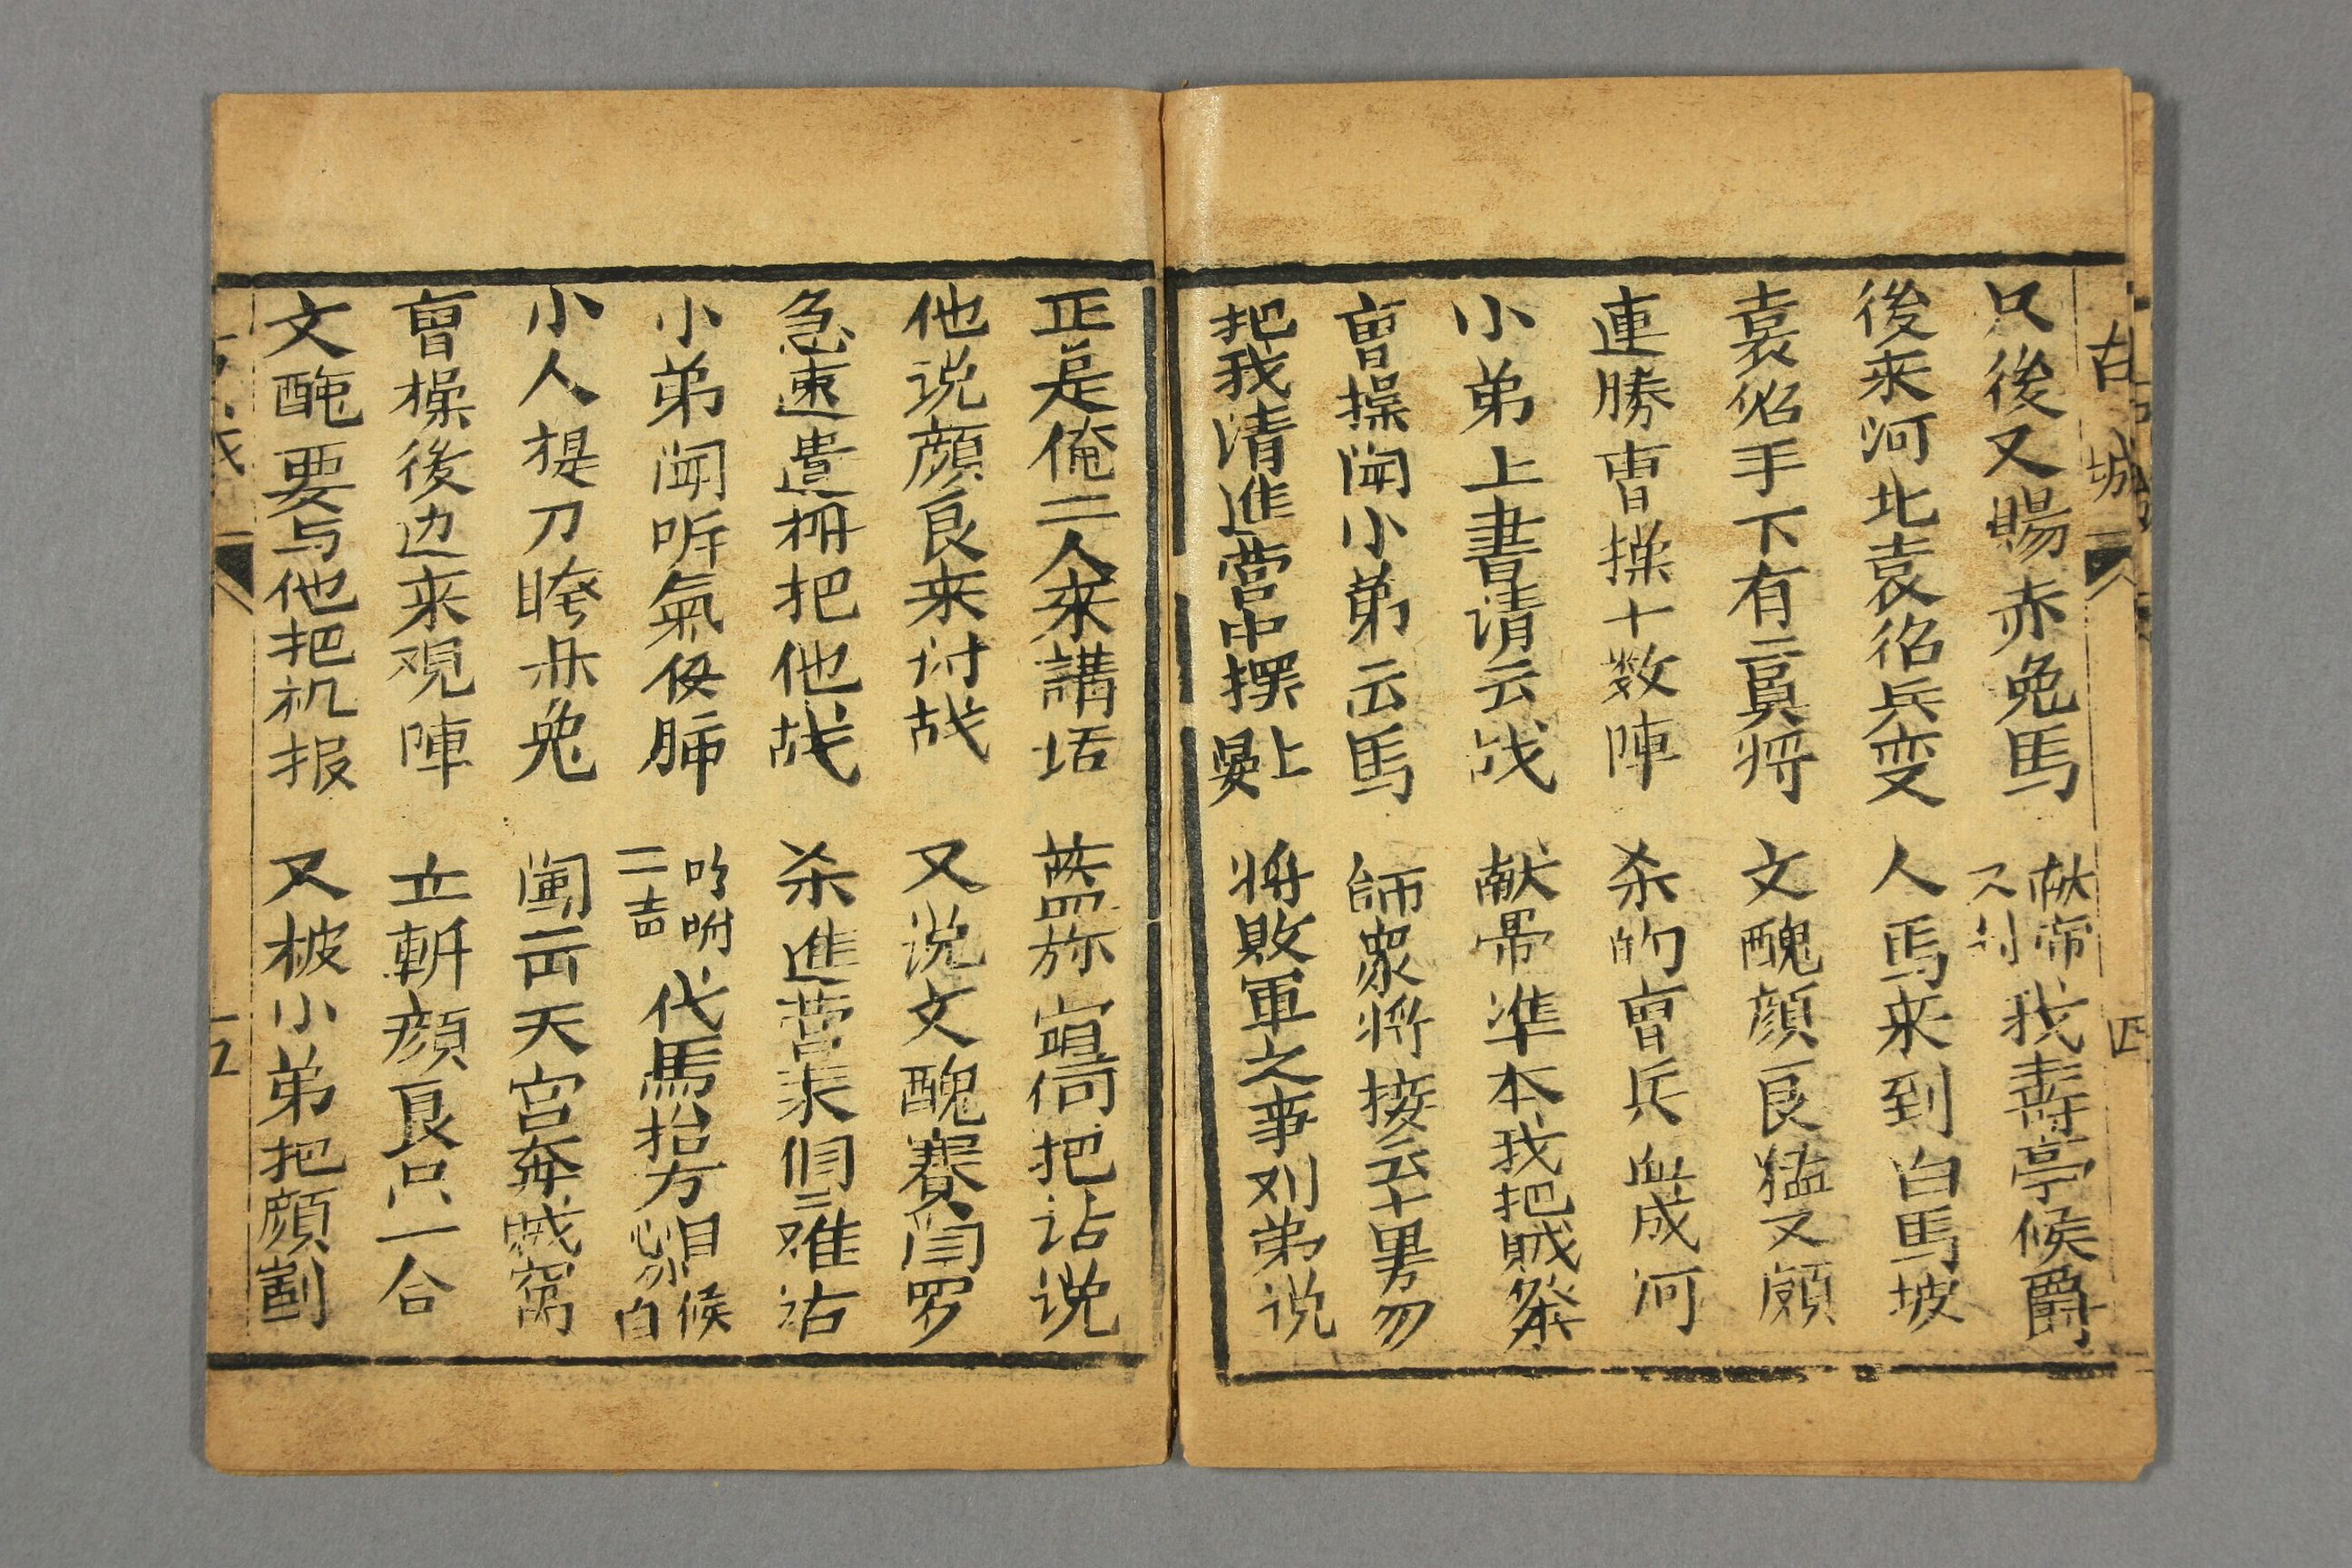 古城
四
只後又賜赤兔馬 献帝又封我壽亭候爵
後来河北袁紹兵变 人馬来到白馬坡
袁紹手下有二員将 文醜顔良猛又頑
連勝曺操十数陣 杀的曺兵血成河
小弟上書请云战 献帝準本我把賊
曺操闻小弟云馬 師衆将接云十里男
把我清進营中摆上晏 将敗軍之事对弟说
正是俺二人来講话 蓝旗嵩倘把话说
他说顔良来讨战 又说文醜赛闫罗
急速遣将把他战 杀進营来個三难活
小弟闻听氣伎肺 吩咐二吉代馬抬方
小人提刀胯舟兔 闖云天宫奔贼窝
曺操後边来观陣 立斬顔良只一合
文醜要与他把机报 又被小弟把顔割